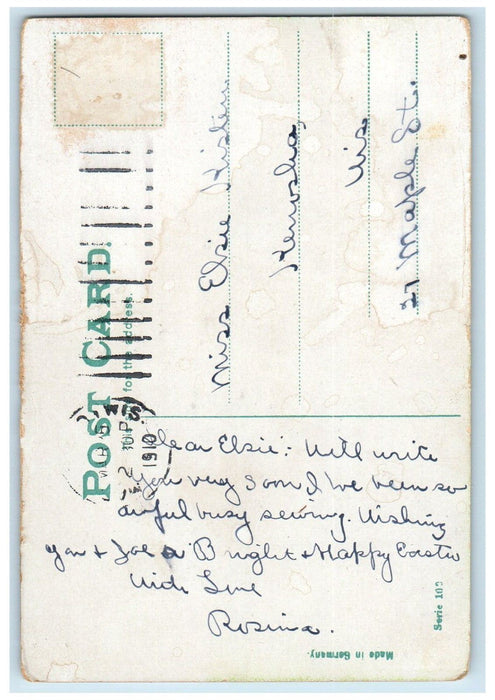 POST CARD.
for the address.
WIS.
2 PM
1910
Miss Elsie
Kenosha,
Wis.
27 Maple St.
Dear Elsie:- Will write
you very soon I've been so
awful busy sewing. Wishing
you & Zoe a Bright & Happy Easter
With Love
Rosina.
Made in Germany.
Serie 169